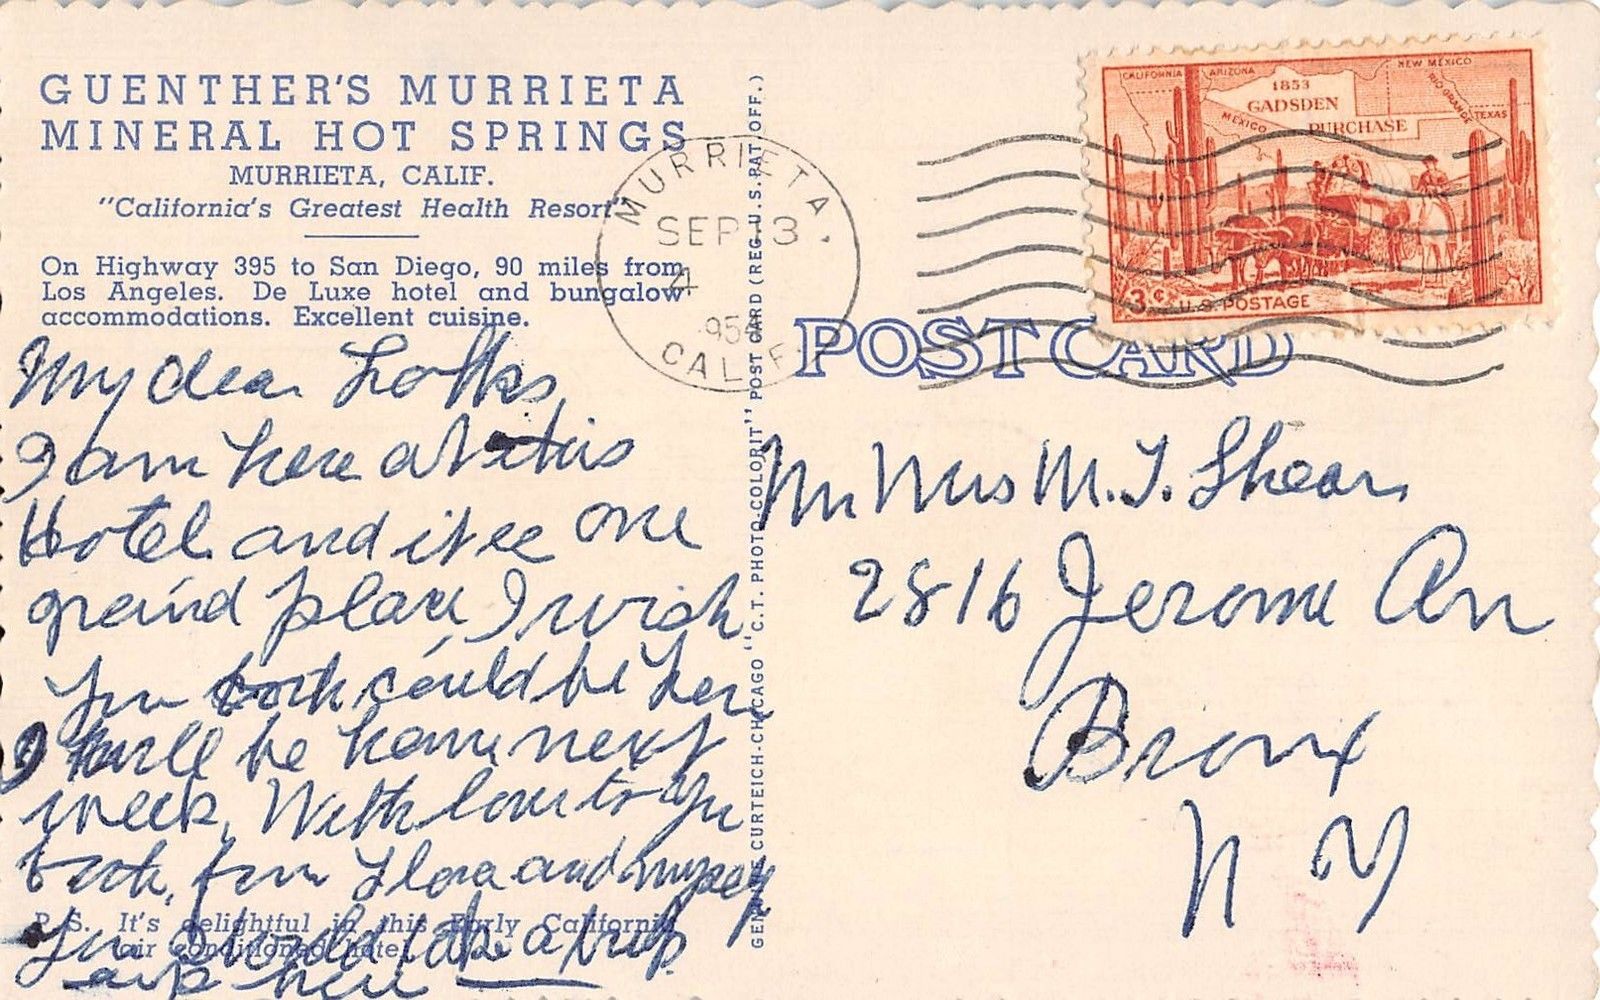 GUENTHER'S MURRIETA
MINERAL HOT SPRINGS
MURRIETA, CALIF.
"California's Greatest Health Resort"
On Highway 395 to San Diego, 90 miles from
Los Angeles. De Luxe hotel and bungalow
accommodations. Excellent cuisine.
My dear Folks,
I am here at this
Hotel and it is one
grand place, I wish
you both could be here
I will be home next
week. With love to you
both, from Flora and myself
You should take a trip
here
P.S. It's delightful in this Early California
air conditioned hotel.
GENUINE CURTEICH-CHICAGO "C.T. PHOTO-COLORIT" POST CARD (REG. U.S. PAT. OFF.)
MURRIETA.
SEP 3
4
195
CALIF.
CALIFORNIA ARIZONA NEW MEXICO
RIO GRANDE
TEXAS
MEXICO
1853
GADSDEN
PURCHASE
3¢ U.S. POSTAGE
POST CARD
Mr Mrs M. J. Shear
2816 Jerome Av
Bronx
N Y